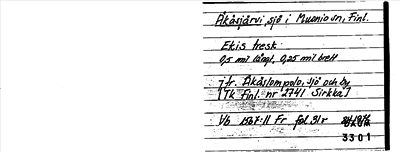 Äkäsjärvi sjö i Muonio sn, Finl.
Ekis tresk
0,5 mil långt, 0,25 mil brett
jfr. Äkäslompolo, sjö och by
[TK finl. nr 2741 Sirkka]
Vb 1567:11 Fr fol 31r
3301